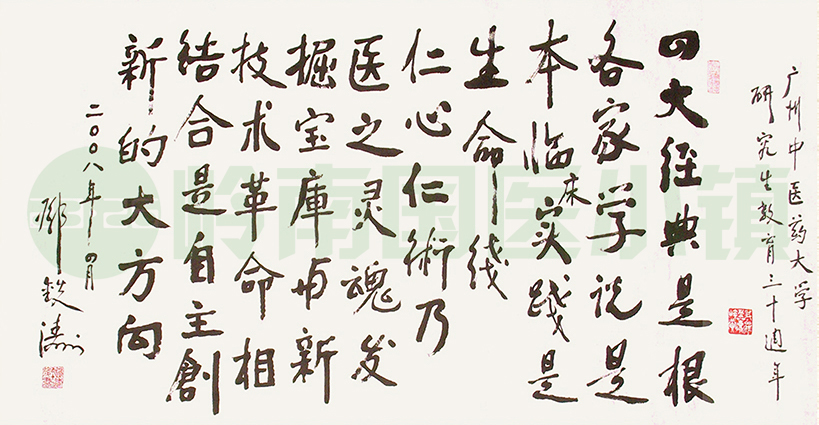 广州中医药大学
研究生教育三十週年
四大经典是根
各家学说是
本临床实践是
生命线
仁心仁術乃
医之灵魂发
掘宝庫与新
技术革命相
结合是自主創
新的大方向
二〇〇八年四月
鄧铁涛
岭南国医小镇